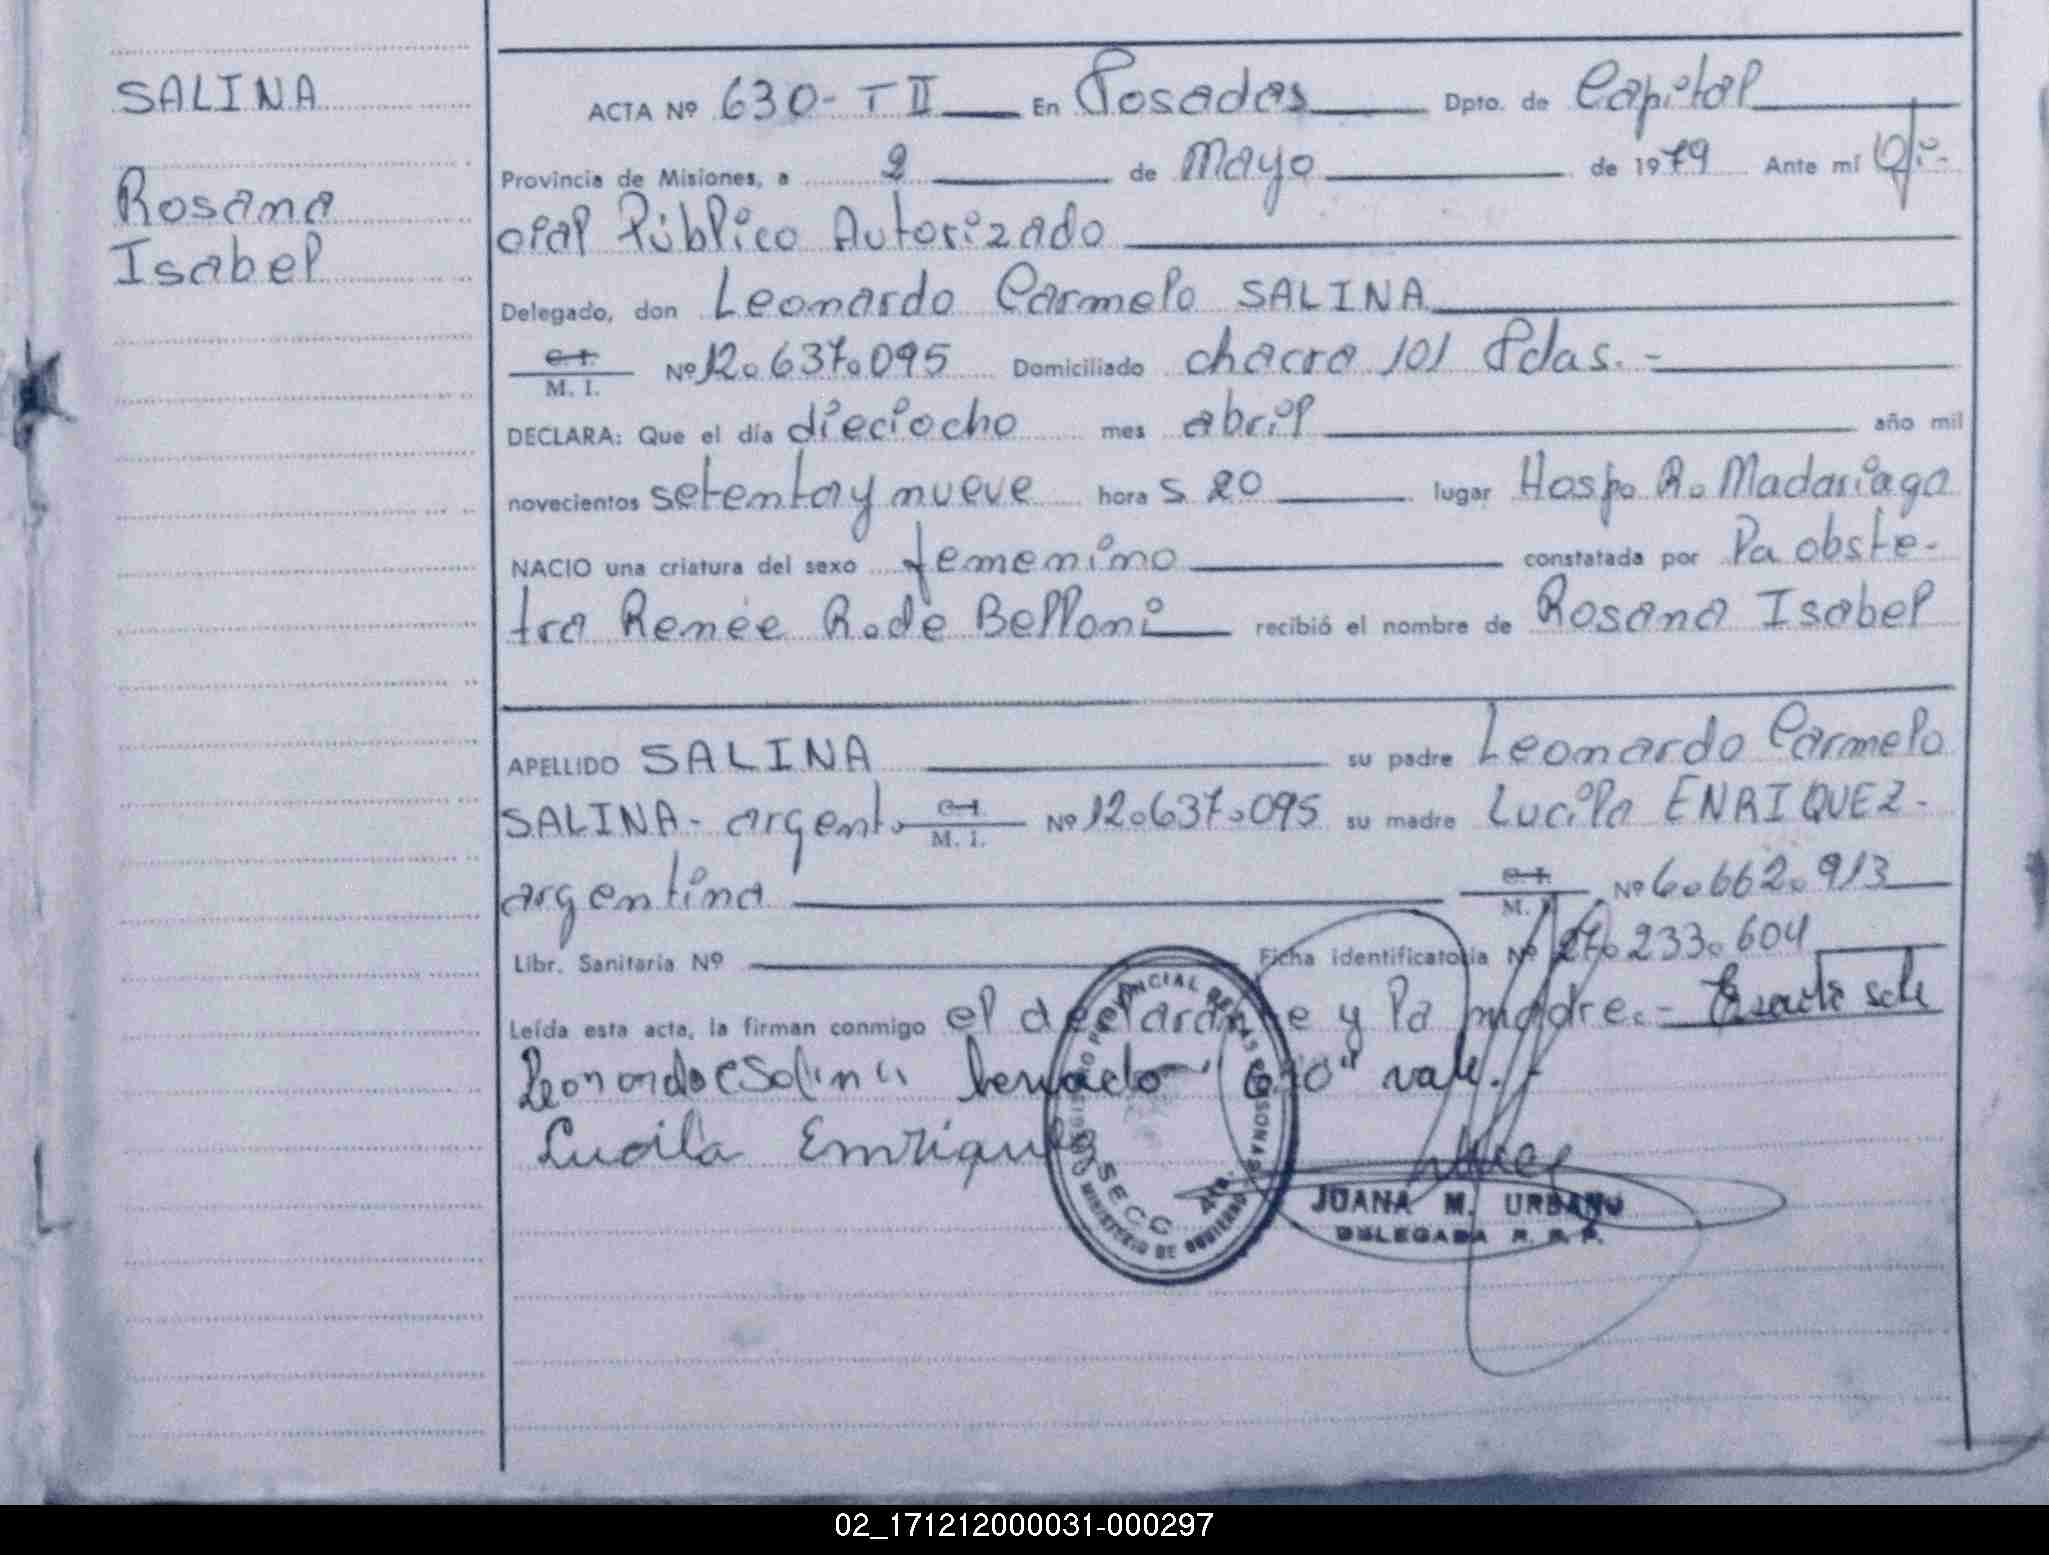 SALINA
Rosana
Isabel
ACTA Nº 630- T II En Posadas Dpto. de Capital
Provincia de Misiones, a 2 de Mayo de 1979 Ante mí Ofi-
cial Público Autorizado
Delegado, don Leonardo Carmelo SALINA
C. I.
M. I. Nº 12.637.095 Domiciliado chacra 101 Pdas.-
DECLARA: Que el día dieciocho mes abril año mil
novecientos setenta y nueve hora s 20 lugar Hosp. R. Madariaga
NACIO una criatura del sexo femenino constatada por la obste-
tra Renée R. de Belloni recibió el nombre de Rosana Isabel
APELLIDO SALINA su padre Leonardo Carmelo
SALINA- argent. C. I. M. I. Nº 12.637.095 su madre Lucila ENRIQUEZ-
argentina C. I. M. Nº 6.662.913
Libr. Sanitaria Nº Ficha identificatoria Nº 27.233.604
Leída esta acta, la firman conmigo el declarante y la madre.-
Leonardo C Salina vale.-
Lucila Enriquez
REGISTRO PROVINCIAL DE LAS PERSONAS
MINISTERIO DE GOBIERNO
SECC. 4ta.
JUANA M. URBANO
DELEGADA R. P. P.
02_171212000031-000297